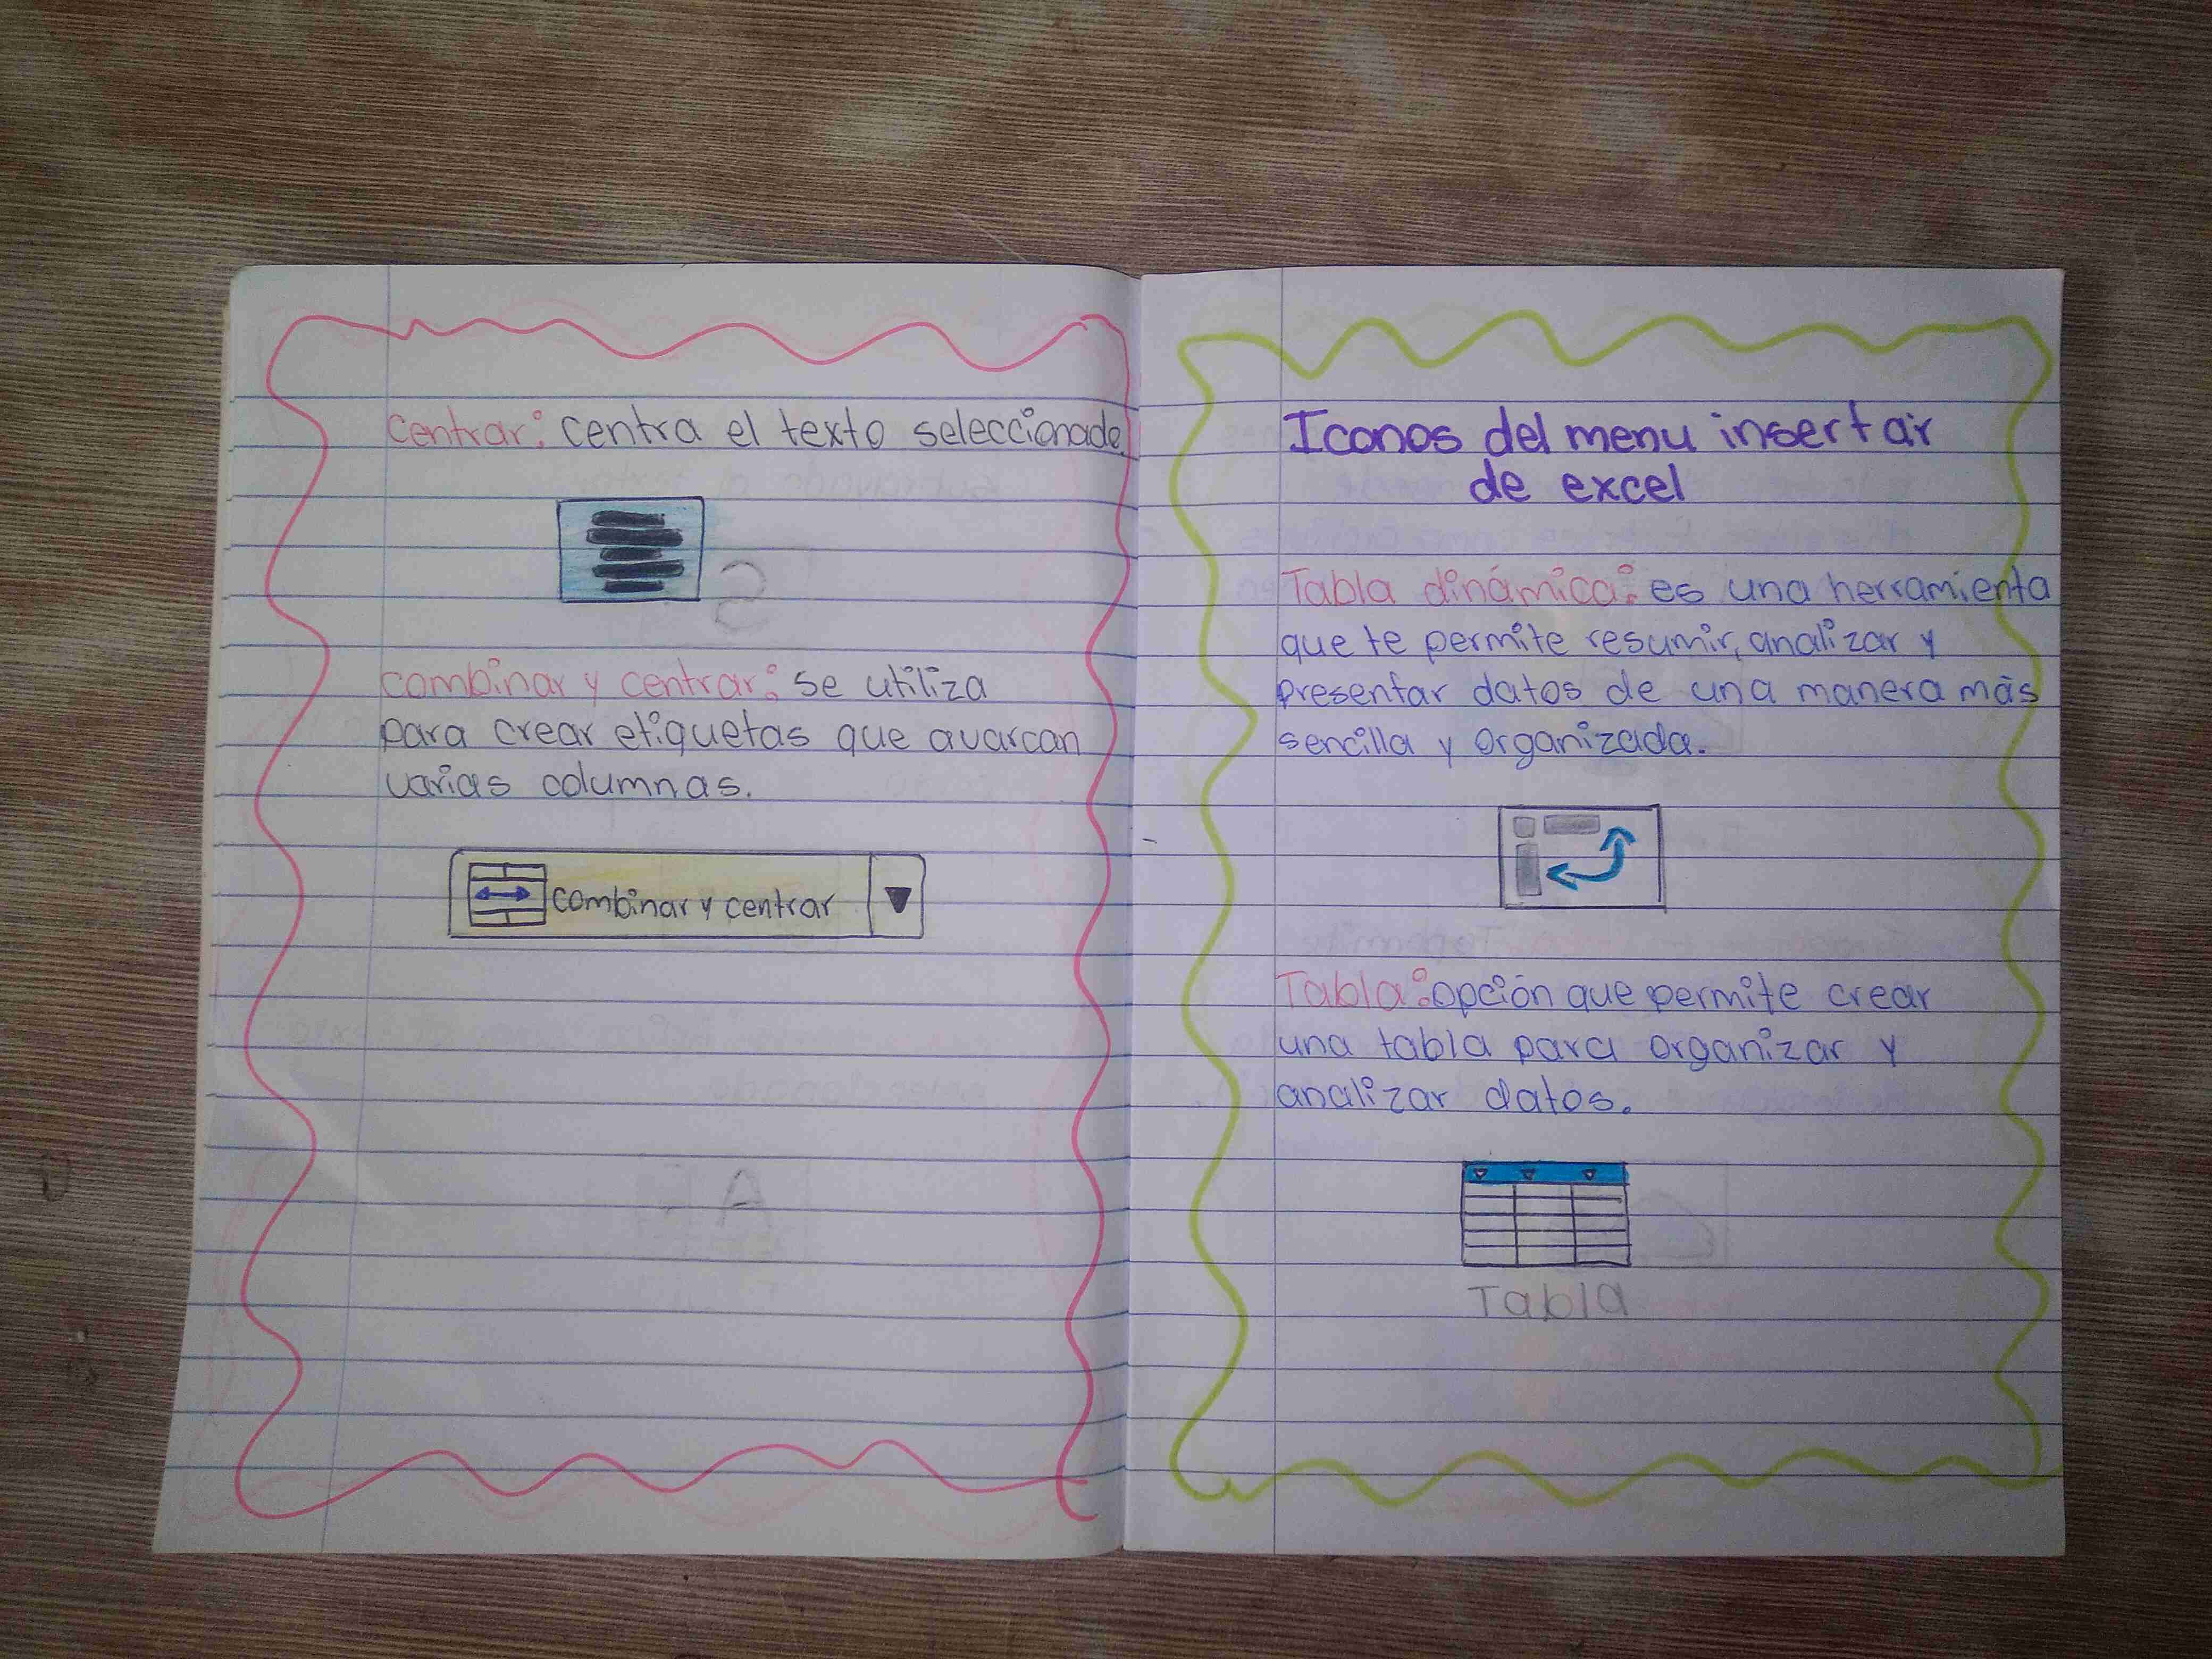 Centrar: centra el texto seleccionado.
combinar y centrar: se utiliza
para crear etiquetas que avarcan
varias columnas.
combinar y centrar
Iconos del menu insertar
de excel
Tabla dinámica: es una herramienta
que te permite resumir, analizar y
presentar datos de una manera más
sencilla y organizada.
Tabla: opción que permite crear
una tabla para organizar y
analizar datos.
Tabla